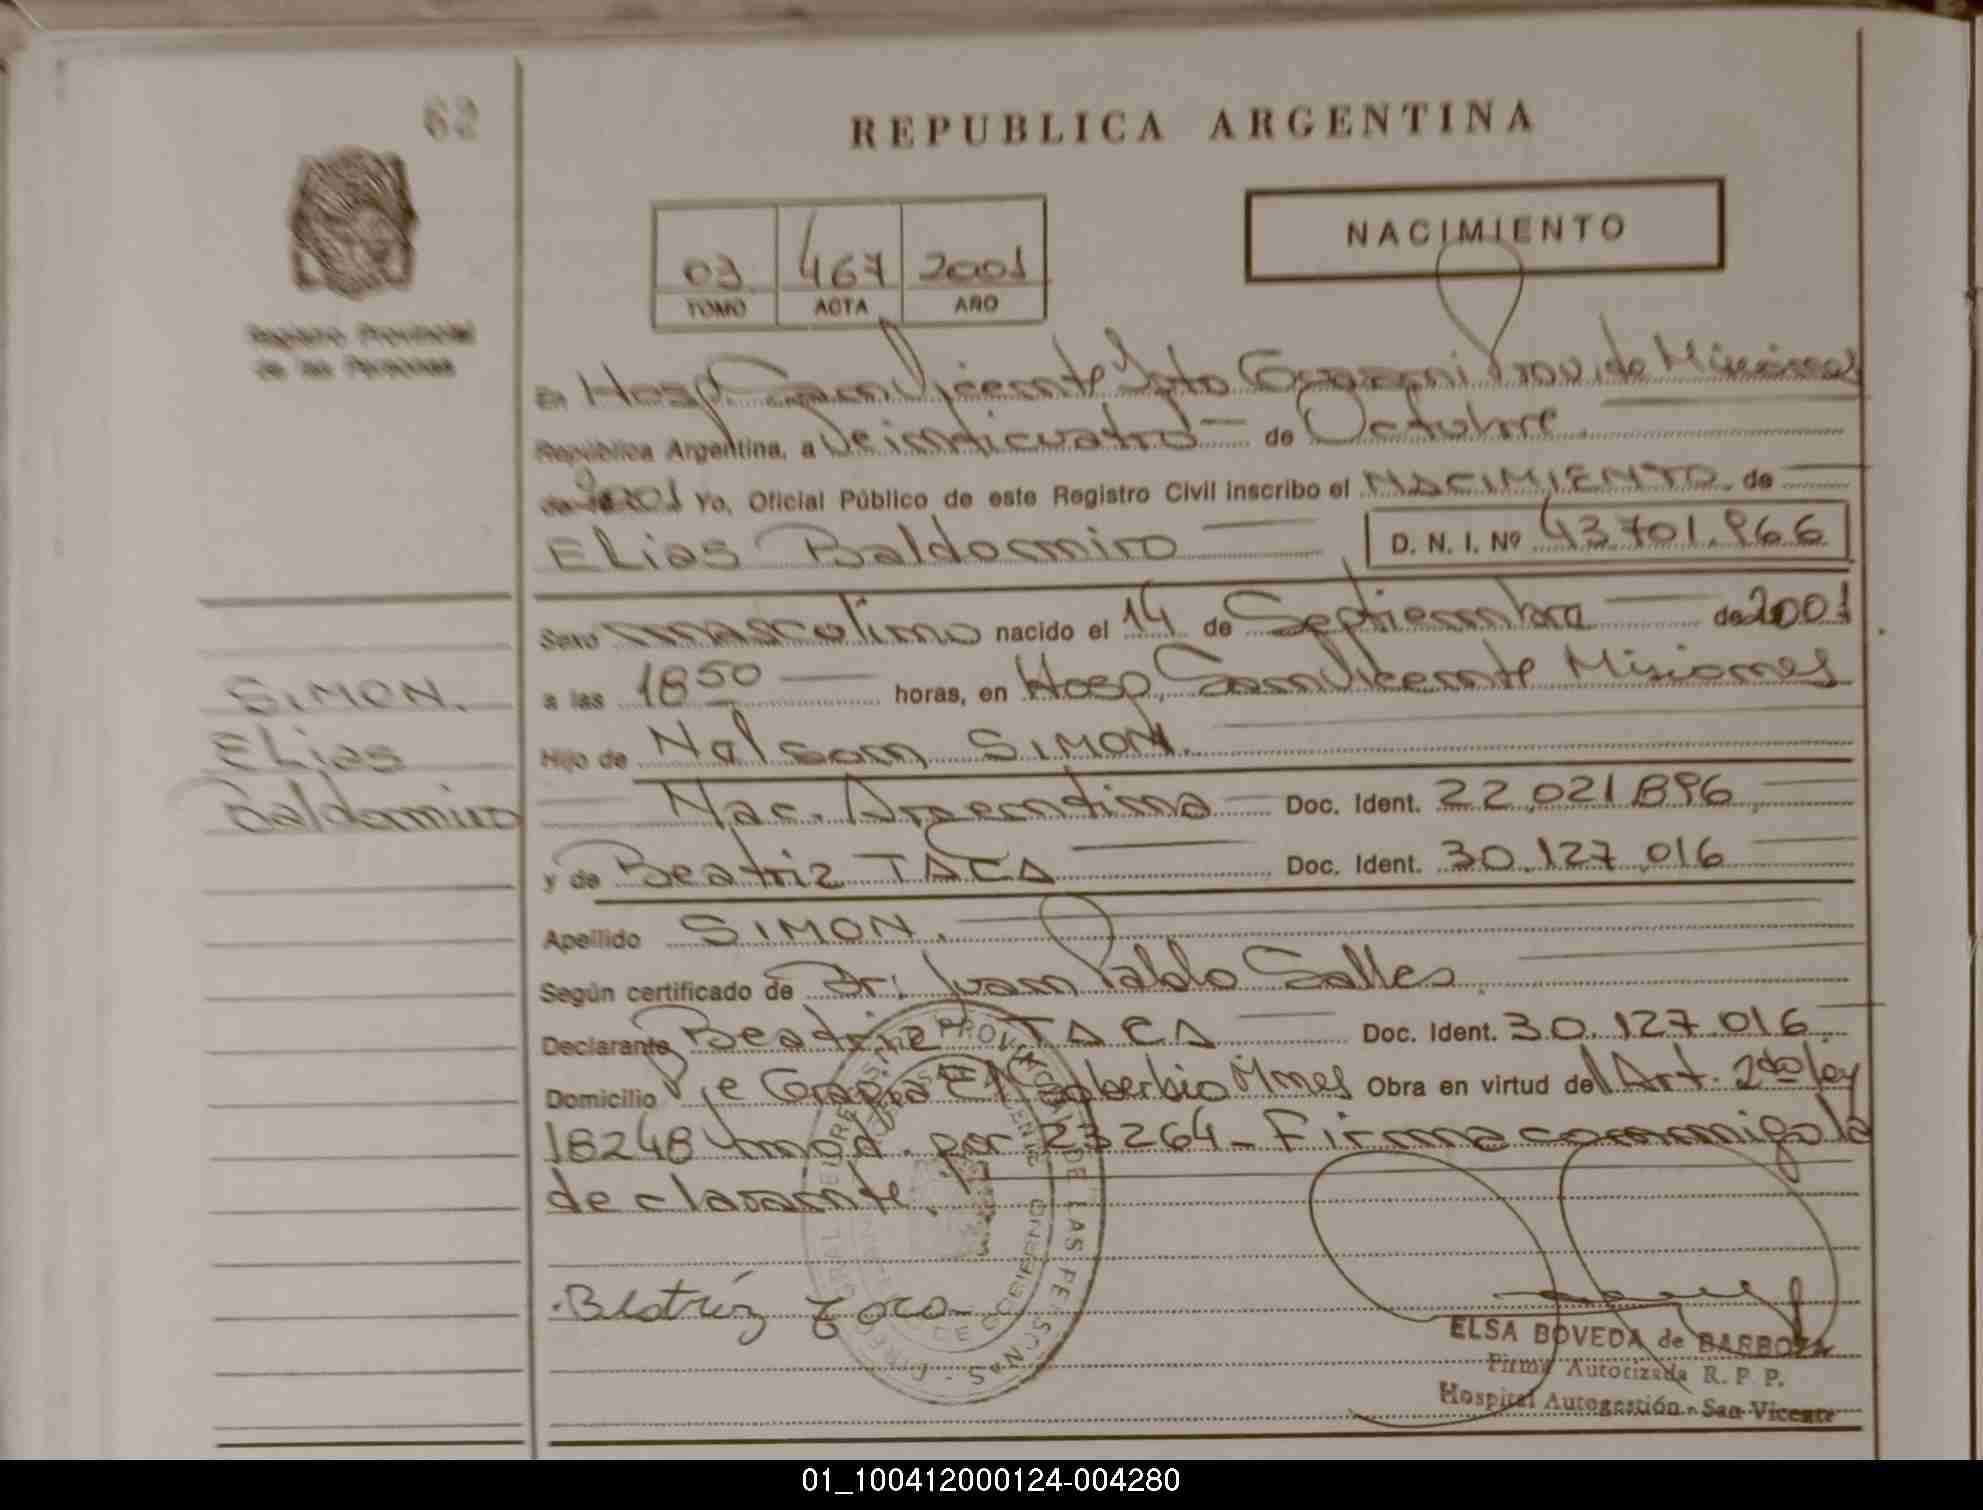 62
REPUBLICA ARGENTINA
NACIMIENTO
03 467 2001
TOMO ACTA AÑO
Registro Provincial
de las Personas
En Hosp. San Vicente Dpto Guarani Prov. de Misiones
República Argentina, a Veinticuatro de Octubre
de 2001 Yo, Oficial Público de este Registro Civil inscribo el NACIMIENTO de
ELias Baldomiro D. N. I. Nº 43.701.966
Sexo masculino nacido el 14 de Septiembre de 2001
a las 18 50 horas, en Hosp. San Vicente Misiones
Hijo de Nelson SIMON.
Nac. Argentina Doc. Ident. 22.021.896
y de Beatriz TACA Doc. Ident. 30.127.016
Apellido SIMON.
Según certificado de Dr: Juan Pablo Salles.
Declarante Beatriz TACA Doc. Ident. 30.127.016
Domicilio El Soberbio Mnes Obra en virtud del Art. 2do ley
18248 mod. por 23264 - Firma conmigo la
declarante.
SIMON.
ELias
Baldomiro
Beatriz
ELSA BOVEDA de BARBOZA
Firma Autorizada R. P. P.
Hospital Autogestión - San Vicente
01_100412000124-004280